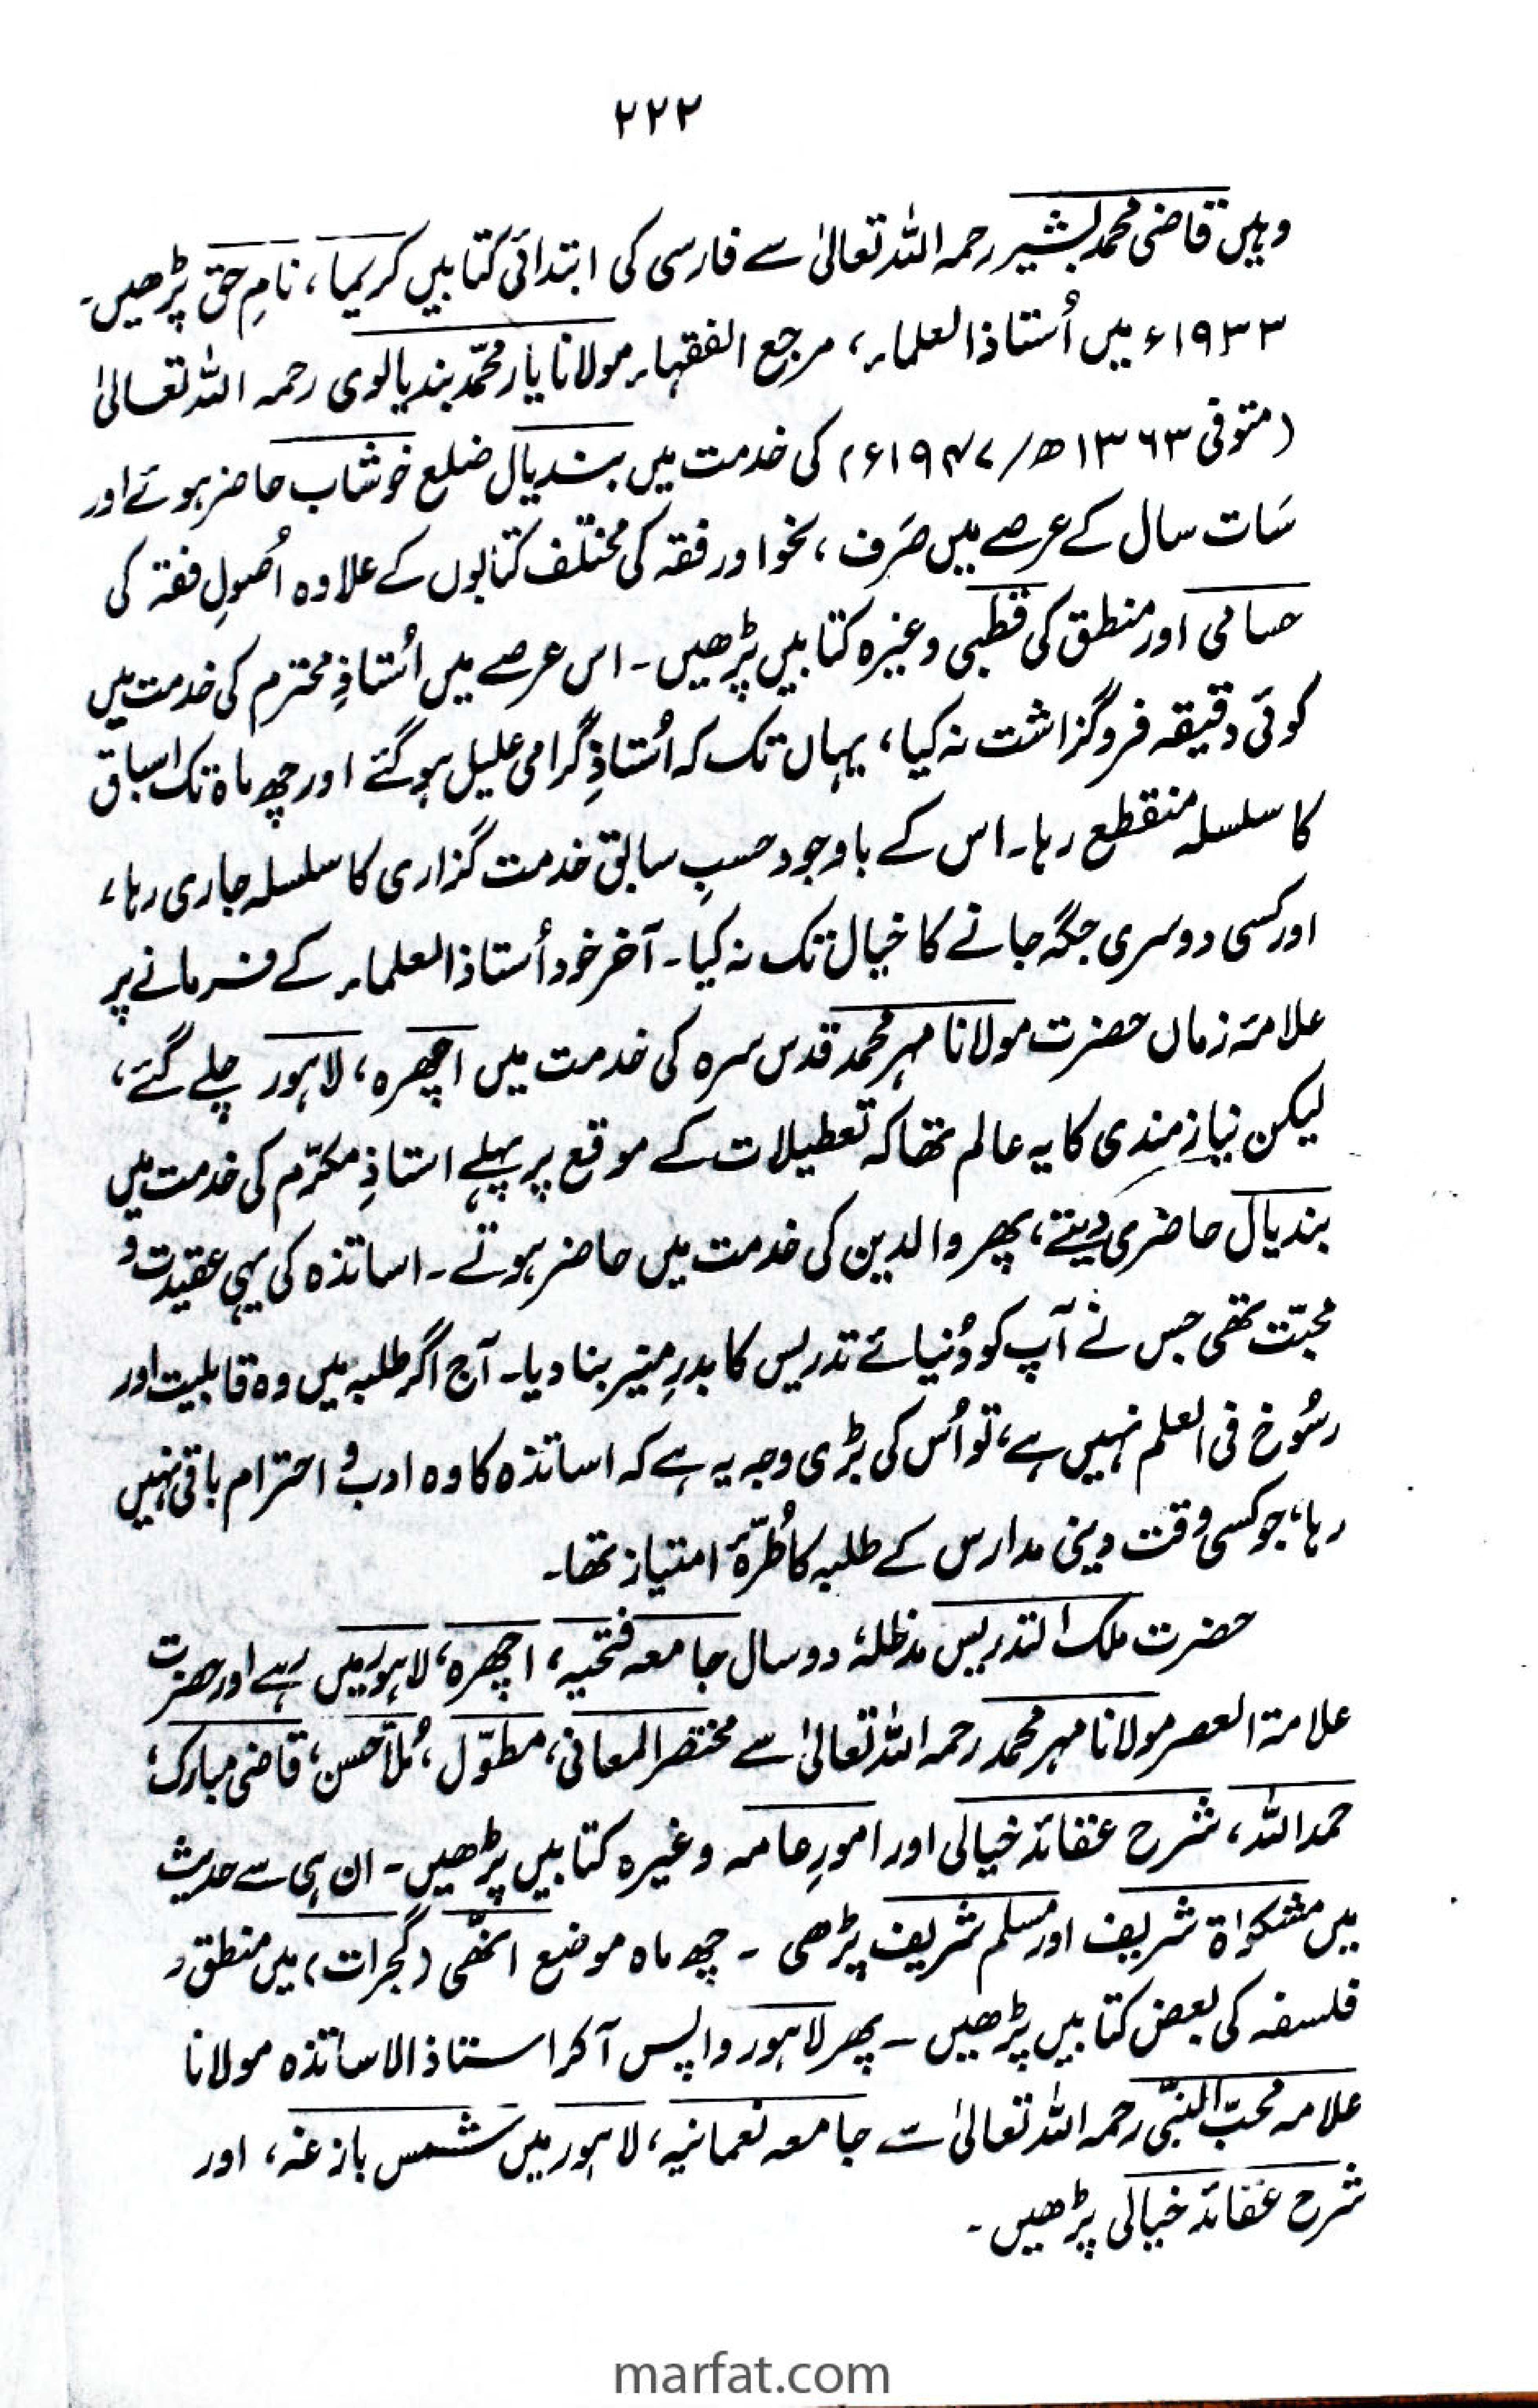 ۲۲۲
وہیں قاضی محمد بشیر رحمہ اللہ تعالیٰ سے فارسی کی ابتدائی کتابیں کریما، نامِ حق پڑھیں۔
۱۹۳۳ء میں اُستاذ العلماء، مرجع الفقہاء مولانا یار محمّد بندیالوی رحمہ اللہ تعالیٰ
(متوفی ۱۳۶۳ھ/۱۹۴۷ء) کی خدمت میں بندیال ضلع خوشاب حاضر ہوئے اور
سَات سال کے عرصے میں صَرف، نحو اور فقہ کی مختلف کتابوں کے علاوہ اُصُولِ فقہ کی
حسامی اور منطق کی قطبی وغیرہ کتابیں پڑھیں۔ اس عرصے میں اُستاذِ محترم کی خدمت میں
کوئی دقیقہ فروگزاشت نہ کیا، یہاں تک کہ اُستاذِ گرامی علیل ہو گئے اور چھ ماہ تک اسباق
کا سلسلہ منقطع رہا۔ اس کے باوجود حسبِ سابق خدمت گزاری کا سلسلہ جاری رہا،
اور کسی دوسری جگہ جانے کا خیال تک نہ کیا۔ آخر خود اُستاذ العلماء کے فرمانے پر
علامۂ زماں حضرت مولانا مہر محمد قدس سرہ کی خدمت میں اچھرہ، لاہور چلے گئے،
لیکن نیاز مندی کا یہ عالم تھا کہ تعطیلات کے موقع پر پہلے استاذِ مکرّم کی خدمت میں
بندیال حاضری دیتے، پھر والدین کی خدمت میں حاضر ہوتے۔ اساتذہ کی یہی عقیدت و
محبّت تھی جس نے آپ کو دُنیائے تدریس کا بدرِ منیر بنا دیا۔ آج اگر طلبہ میں وہ قابلیت اور
رسُوخ فی العلم نہیں ہے، تو اُس کی بڑی وجہ یہ ہے کہ اساتذہ کا وہ ادب و احترام باقی نہیں
رہا، جو کسی وقت دینی مدارس کے طلبہ کا طُرّۂ امتیاز تھا۔
حضرت ملک التدریس مدظلہٗ دو سال جامعہ فتحیہ، اچھرہ، لاہور میں رہے اور حضرت
علامۃ العصر مولانا مہر محمد رحمہ اللہ تعالیٰ سے مختصر المعانی، مطوّل، مُلّا حسن، قاضی مبارک،
حمداللہ، شرح عقائد خیالی اور امورِ عامہ وغیرہ کتابیں پڑھیں۔ ان ہی سے حدیث
میں مشکوٰۃ شریف اور مسلم شریف پڑھی ۔ چھ ماہ موضع انھّی (گجرات) میں منطق و
فلسفہ کی بعض کتابیں پڑھیں ۔ پھر لاہور واپس آ کر استاذ الاساتذہ مولانا
علامہ محبّ النبّی رحمہ اللہ تعالیٰ سے جامعہ نعمانیہ، لاہور میں شمس بازغہ، اور
شرح عقائد خیالی پڑھیں ۔
marfat.com